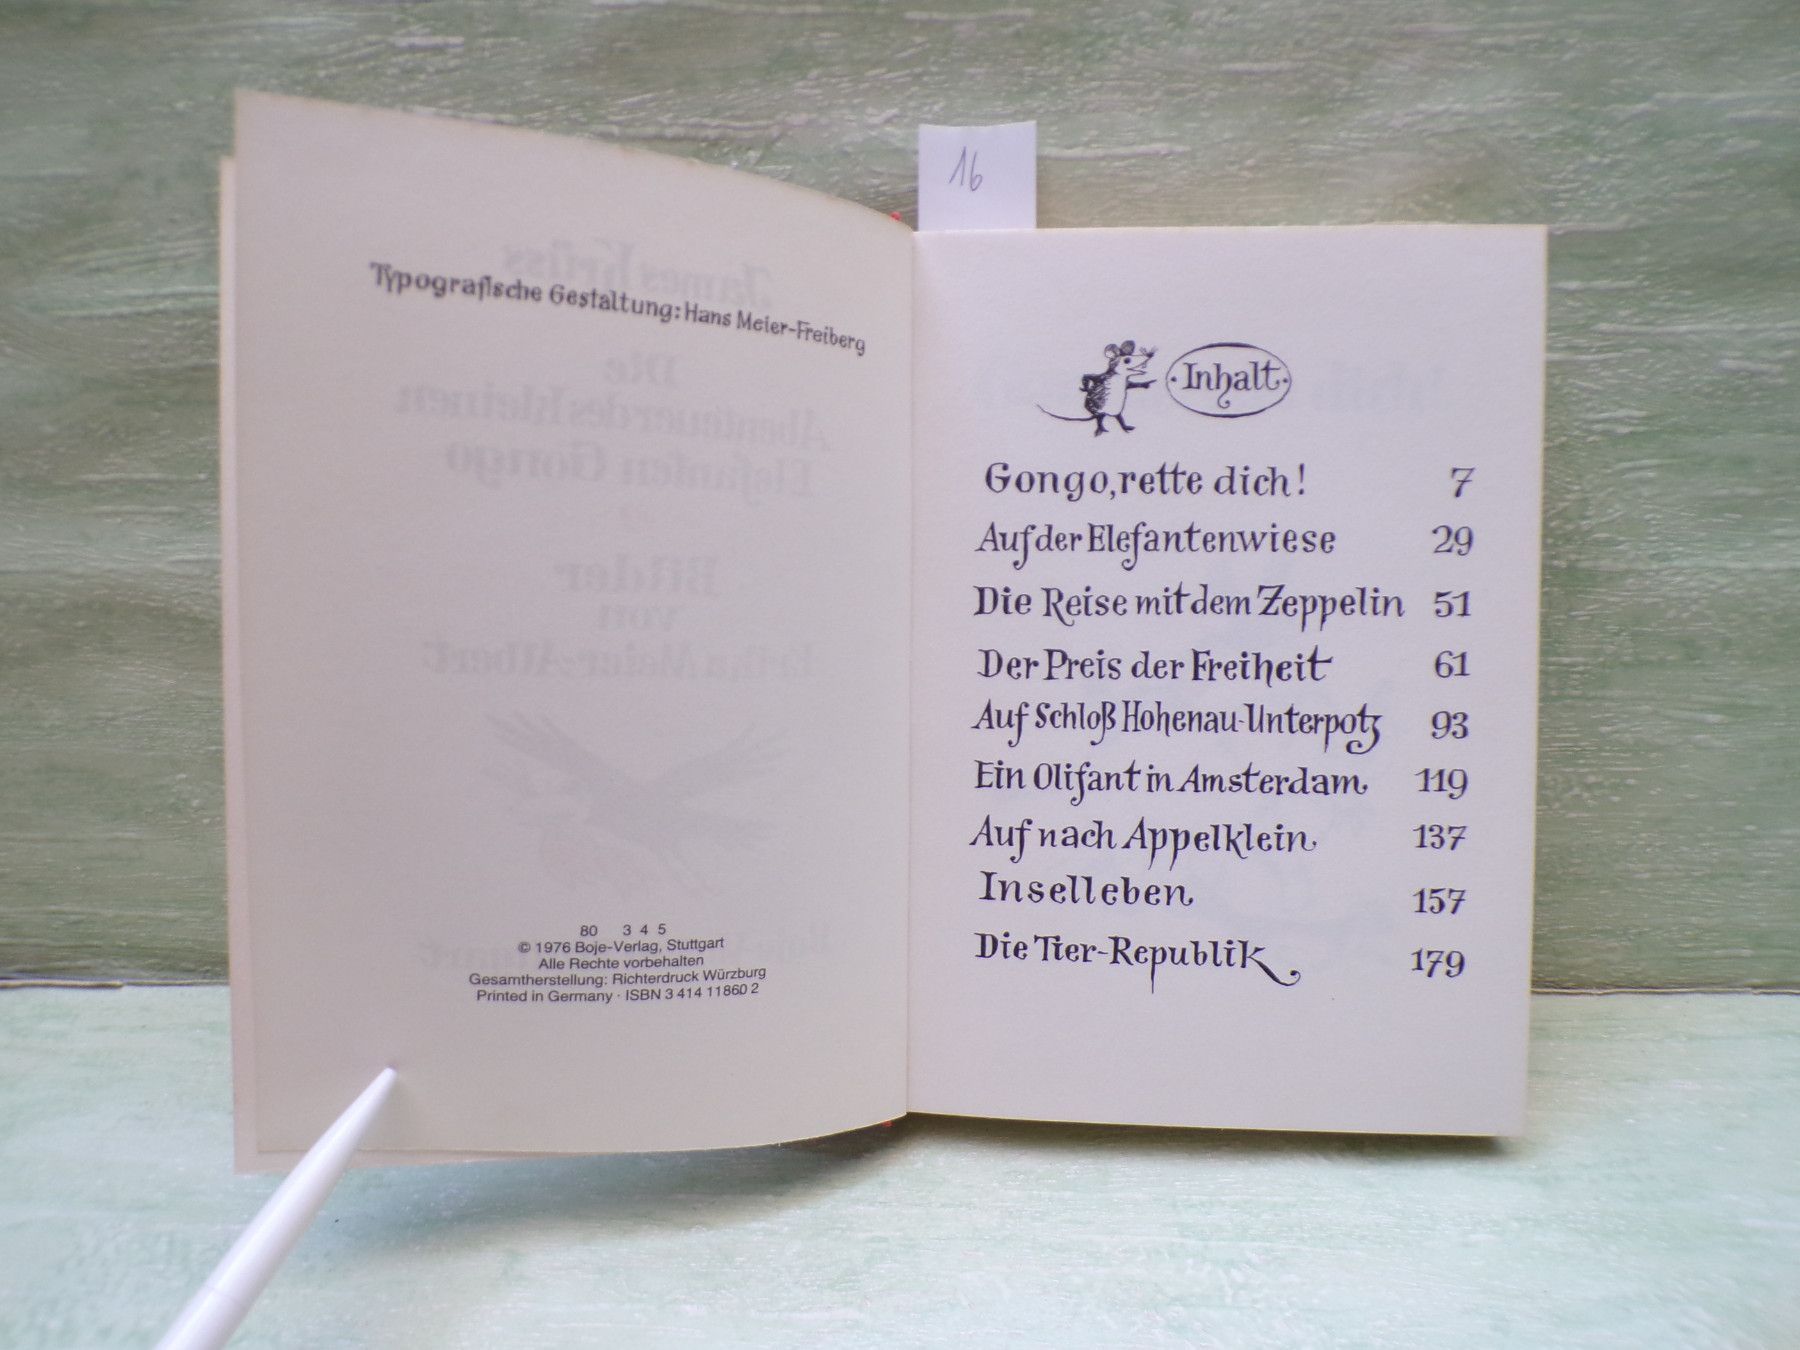 16
Typografische Gestaltung: Hans Meier-Freiberg
80 3 4 5
© 1976 Boje-Verlag, Stuttgart
Alle Rechte vorbehalten
Gesamtherstellung: Richterdruck Würzburg
Printed in Germany · ISBN 3 414 11860 2
· Inhalt ·
Gongo, rette dich! 7
Auf der Elefantenwiese 29
Die Reise mit dem Zeppelin 51
Der Preis der Freiheit 61
Auf Schloß Hohenau-Unterpotz 93
Ein Olifant in Amsterdam 119
Auf nach Appelklein 137
Inselleben 157
Die Tier-Republik 179